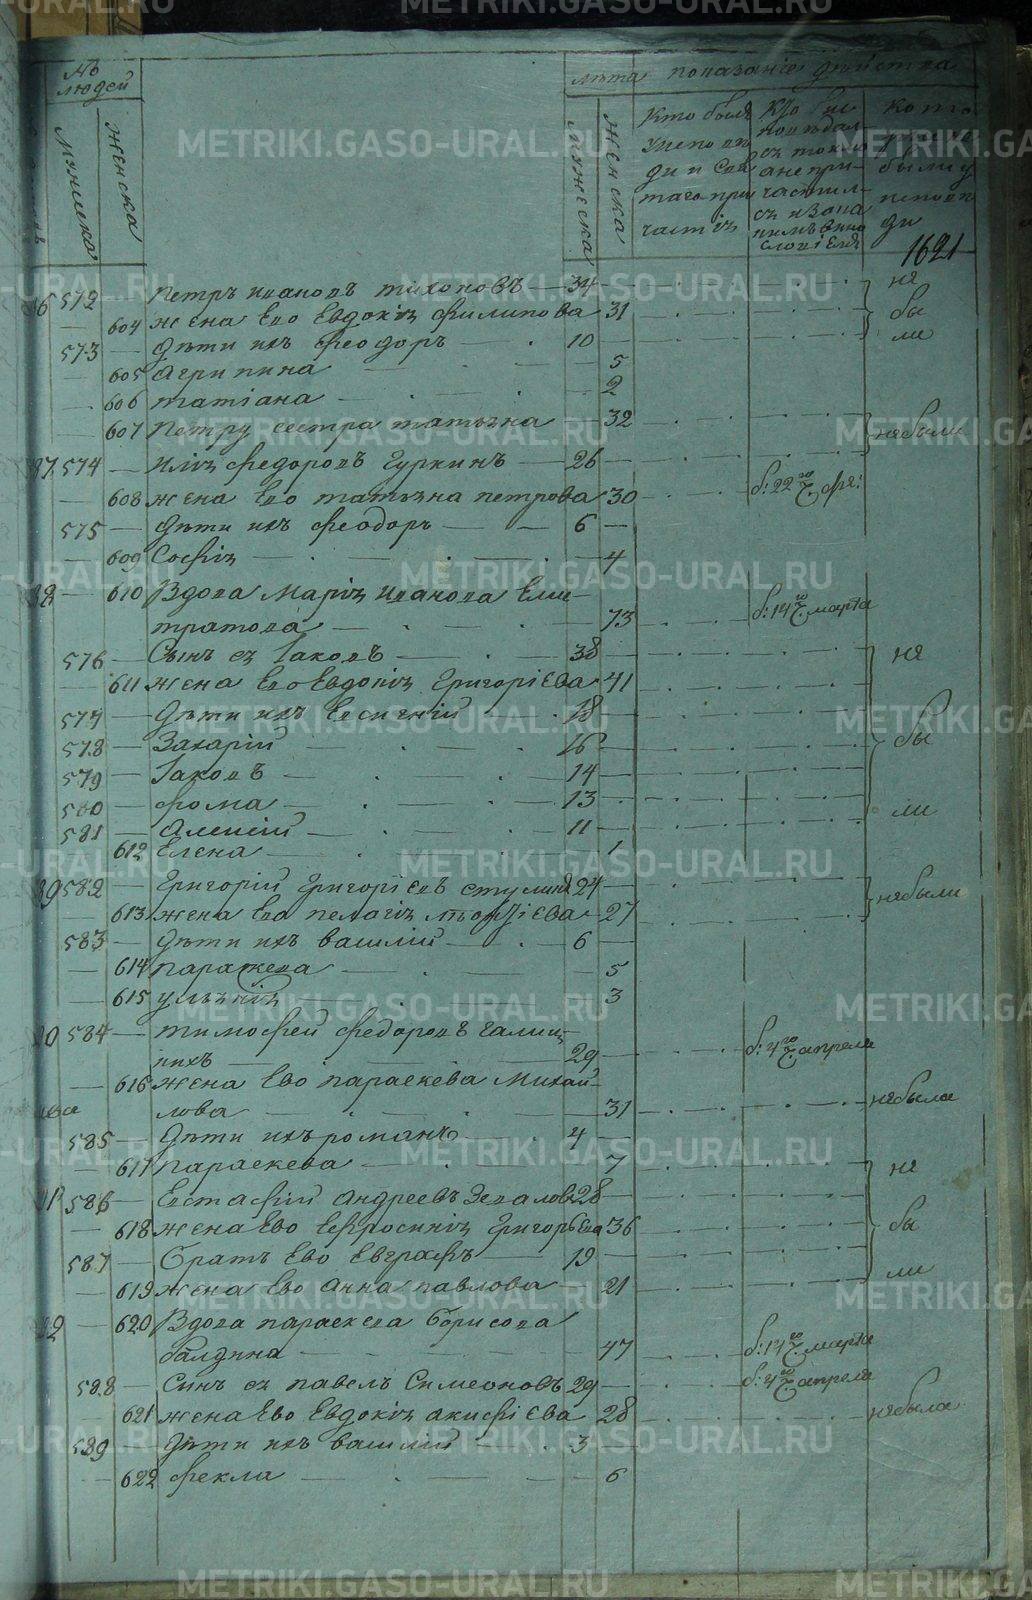 № людей
мужеска
женска
лѣта
показаніе дѣйства
мужеска
женска
Кто былъ у исповѣди и святаго причастія
кто
кото
были у исповѣди
1621
86 572 — Петръ Ивановъ Тихоновъ — 34 — не
604 жена Его Евдокія Филипова 31 бы
573 — дѣти ихъ Феодоръ — 10 — ли
605 Агрипина — 5
606 татіана — 2
607 Петру сестра татьяна — 32
небыли
87 574 — Илія Федоровъ Гуркинъ — 26
608 жена Его татьяна петрова 30 б: 22го Ф фев:
575 — дѣти ихъ Феодоръ — 6 —
609 Софія — 4
88 — 610 Вдова Марія Иванова Ели-
тратова — 73 б: 14го марта
576 — Сынъ ея Іаковъ — 38 не
611 жена Его Евдокія Григоріева 41
577 — дѣти ихъ Евсигній — 18 бы
578 — Захарій — 16
579 — Іаковъ — 14
580 — Фома — 13
581 — Алексій — 11 ли
612 Елена — 1
89 582 — Григорій Григоріевъ 24 — небыли
613 жена Его пелагія 27
583 — дѣти ихъ василій — 6
614 параскева — 5
615 ульянія — 3
90 584 — тимофей Федоровъ Галиц-
кихъ — 29 б: 4го апреля
616 жена Ево параскева Михай-
лова — 31 небыла
585 — дѣти ихъ романъ — 4
617 параскева — 7 не
91 586 — Евстафій Андреевъ 28 —
618 жена Ево Ефросинія Григорьева 36 бы
587 — братъ Ево Евграфъ — 19
ли
619 жена Ево Анна павлова — 21
92 — 620 Вдова параскева борисова
балдина — 47 б: 14го марта
588 — Синъ ея павелъ Симеоновъ 29 — б: 4го апреля
621 жена Ево Евдокія акифіева 28 небыла
589 — дѣти ихъ василій — 3
622 фекла — 6
METRIKI.GASO-URAL.RU